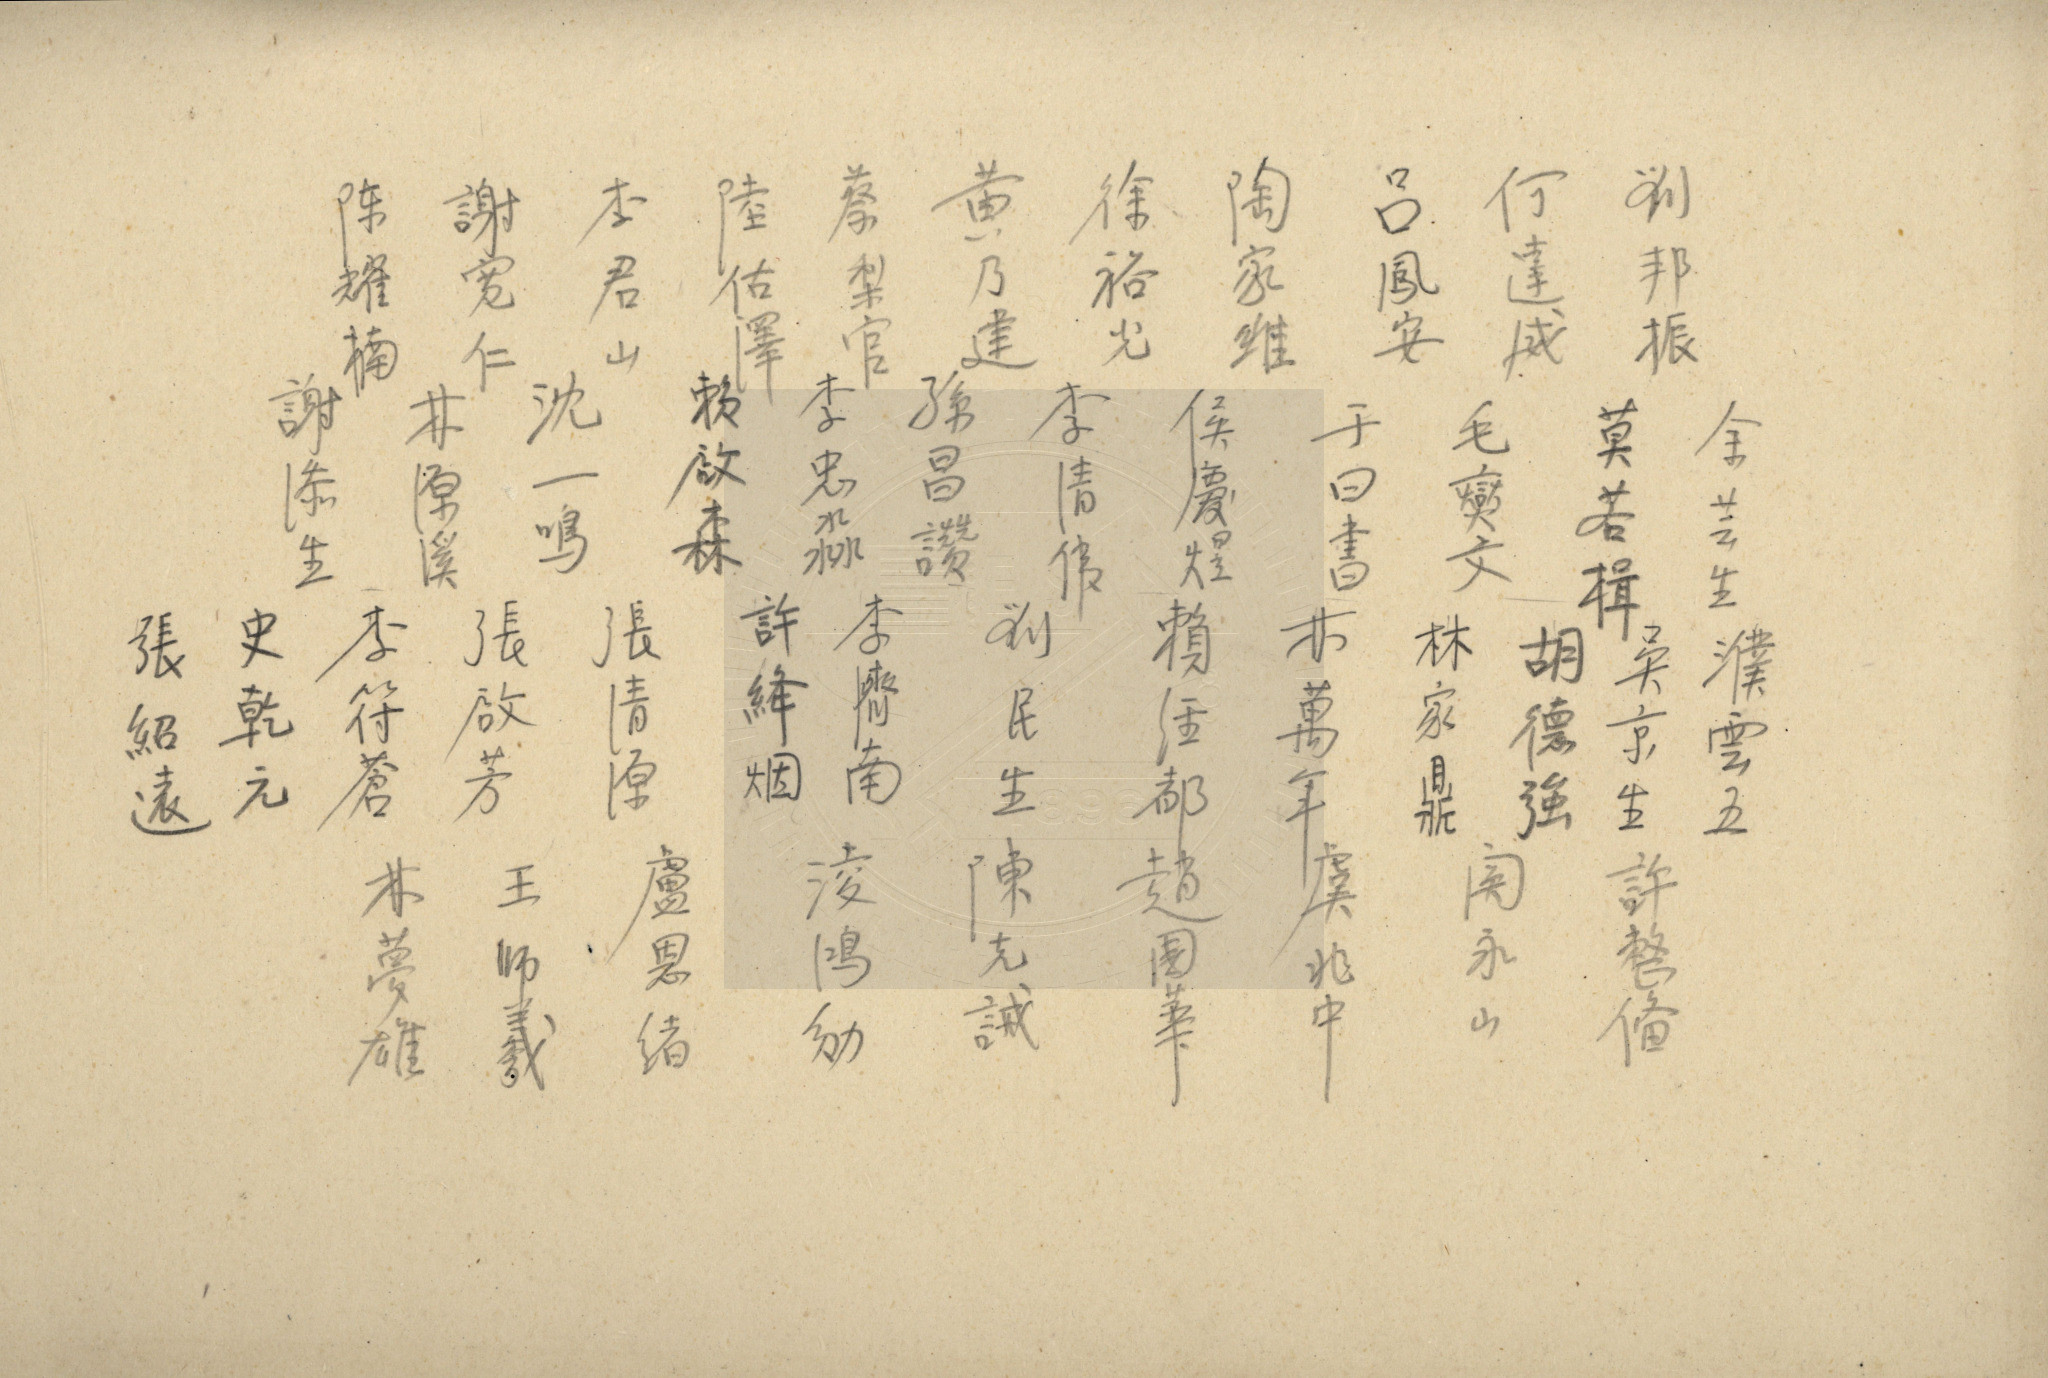 劉邦振
何達威
呂鳳安
陶家維
徐裕光
黃乃建
蔡梨官
陸佑澤
李君山
謝寬仁
陈耀楠
余芸生
莫若楫
毛奭文
于曰書
侯慶煋
李清傧
孫昌讚
李忠淼
賴啟森
沈一鳴
林源溪
謝添生
濮雲五
吳京生
胡德強
林家鼎
林萬年
賴经都
劉民生
李濟南
許絳烟
張清源
張啟芳
李符蒼
史乾元
張紹遠
許整俻
闵永山
虞兆中
趙國華
陳克誠
淩鴻勛
盧恩緒
王師羲
林夢雄